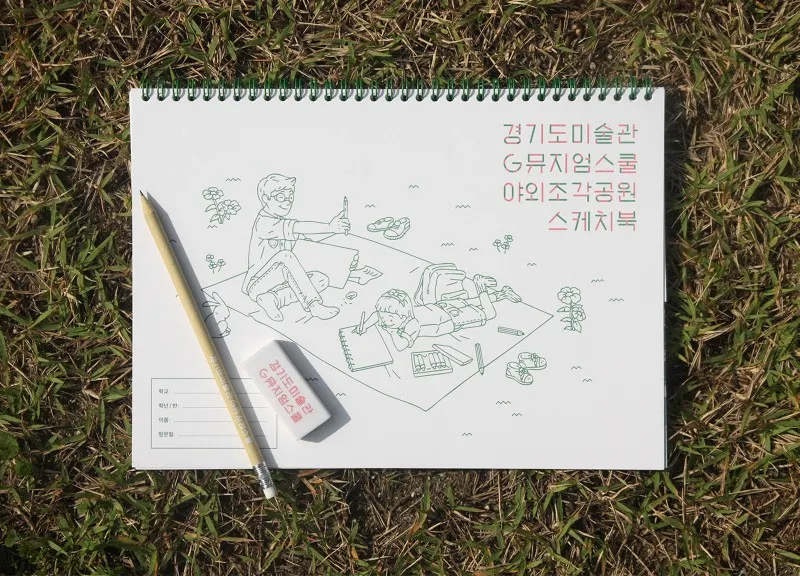 경기도미술관
G뮤지엄스쿨
야외조각공원
스케치북
경기도미술관
G뮤지엄스쿨
학교:
학년 / 반:
이름:
방문일: